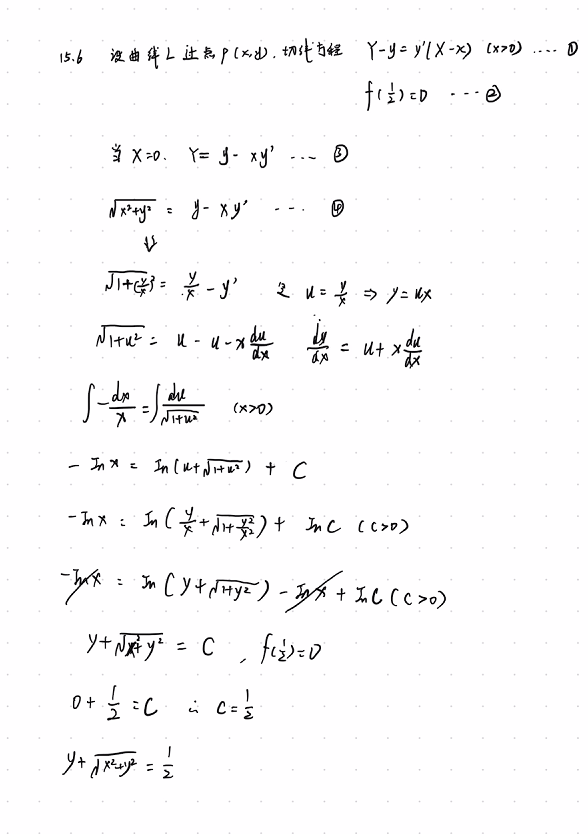 15.6 设曲线L过点P(x,y).切线方程 Y-y=y'(X-x) (x>0) .... ①
f(1/2)=0 ... ②
当X=0. Y= y-xy' ... ③
√(x²+y²) = y-xy' ... ④
⇓
√(1+(y/x)²) = y/x - y' 令 u=y/x ⇒ y=ux
√(1+u²) = u-u-x du/dx dy/dx = u+x du/dx
∫-dx/x = ∫du/√(1+u²) (x>0)
-ln x = ln(u+√(1+u²)) + C
-ln x = ln(y/x+√(1+y²/x²)) + ln C (C>0)
-ln x = ln(y+√(1+y²)) - ln x + ln C (C>0)
y+√(x²+y²) = C , f(1/2)=0
0+1/2=C ∴ C=1/2
y+√(x²+y²) = 1/2